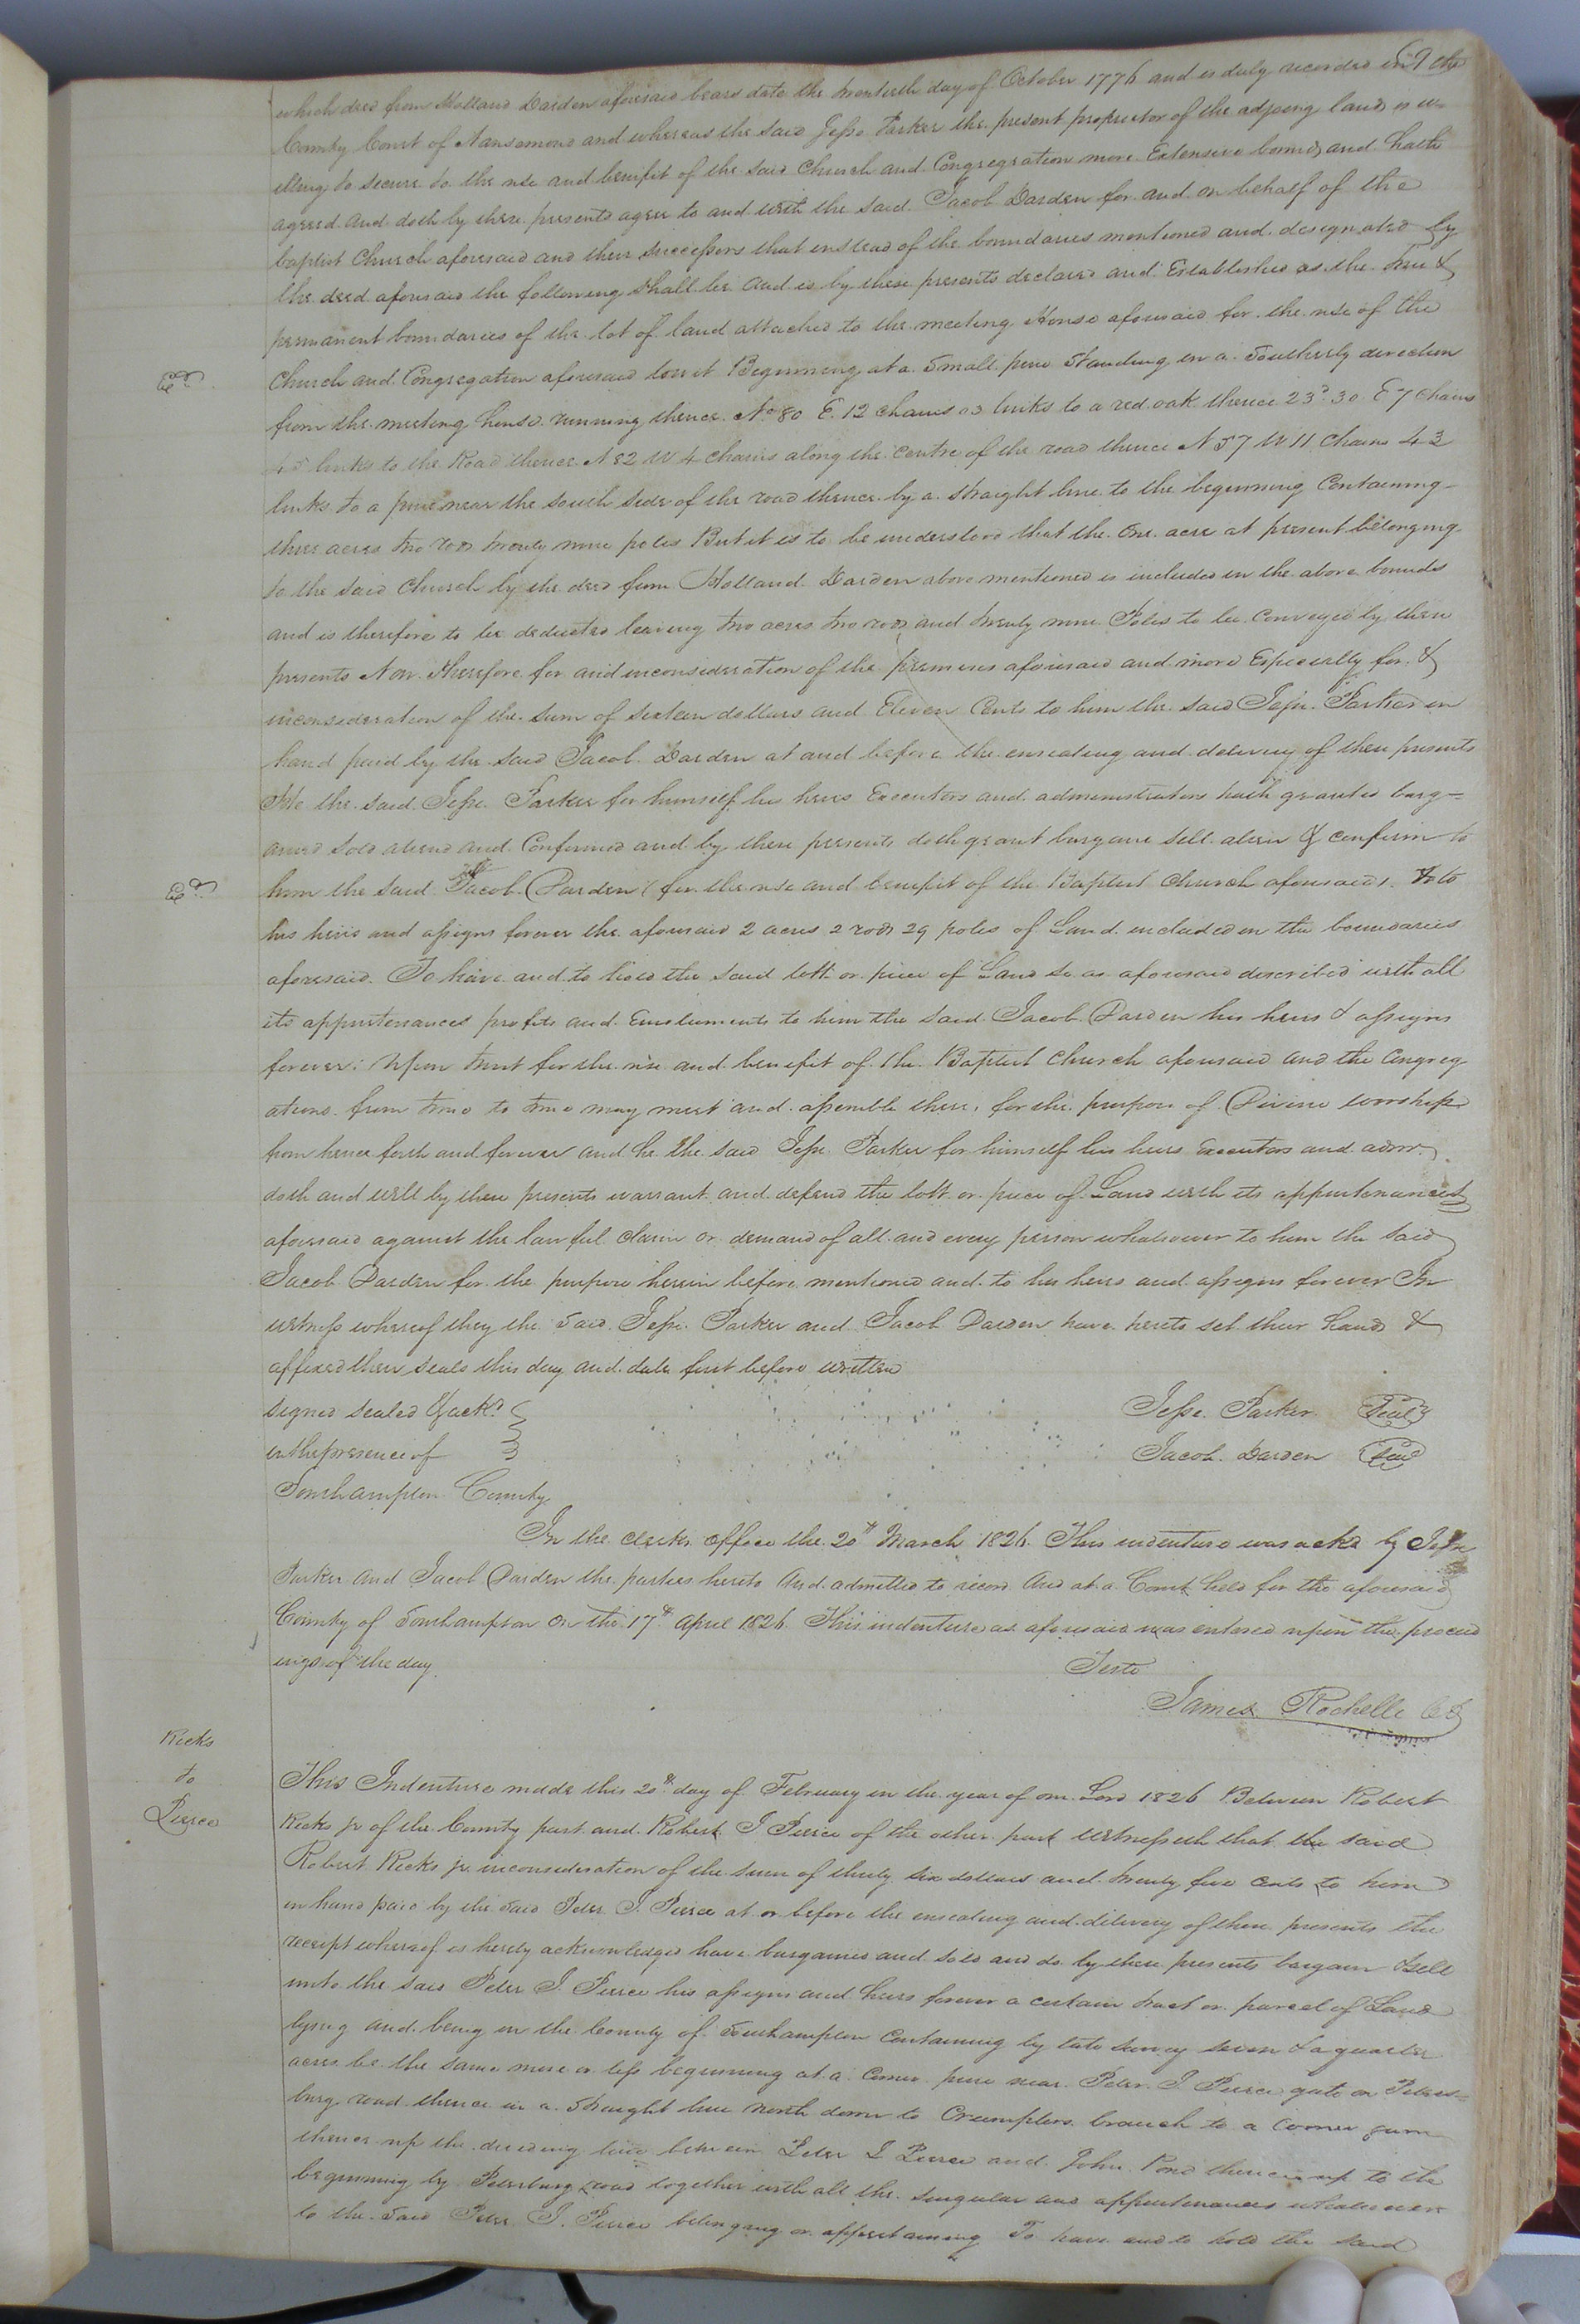 67
which deed from Holland Darden aforesaid bears date the twentieth day of October 1776 and is duly recorded in the
County Court of Nansemond and whereas the said Jesse Parker the present proprietor of the adjoeng land is w-
illing to secure to the use and benefit of the said Church and Congregation more Extensive bounds and hath
agreed and doth by these presents agree to and with the said Jacob Darden for and on behalf of the
baptist Church aforesaid and their successors that instead of the boundaries mentioned and designated by
the deed aforesaid the following shall be and is by these presents declared and Established as the true &
permanent boundaries of the lot of land attached to the meeting House aforesaid for the use of the
Church and Congregation aforesaid towit Beginning at a Small pine Standing in a Southerly direction
from the meeting house running thence No 80 E. 12 chains 03 links to a red oak thence 23° 30 E 7 chains
45 links to the Road thence N 82 W 4 chains along the centre of the road thence N 57 W 11 Chains 43
links to a pine near the south side of the road thence by a straight line to the beginning Containing
three acres two rods twenty nine poles But it is to be understood that the one acre at present belonging
to the said Church by the deed from Holland Darden above mentioned is included in the above bounds
and is therefore to be deducted leaving two acres two rods and twenty nine Poles to be Conveyed by these
presents Now therefore for and inconsideration of the premises aforesaid and more Especially for &
inconsideration of the sum of sixteen dollars and Eleven Cents to him the said Jesse Parker in
hand paid by the said Jacob Darden at and before the ensealing and delivery of these presents
He the said Jesse Parker for himself his heirs Executors and administrators hath granted barg=
ained sold aliend and Confirmed and by these presents doth grant bargain sell alien & confirm to
him the said Jacob Darden (for the use and benefit of the Baptist Church aforesaid) & to
his heirs and assigns forever the aforesaid 2 acres 2 rods 29 poles of Land included in the boundaries
aforesaid. To have and to hold the said lott or piece of Land so as aforesaid described with all
its appurtenances profits and Emoluments to him the said Jacob Darden his heirs & assigns
forever: Upon trust for the use and benefit of the Baptist Church aforesaid and the Congreg
ations from time to time may meet and assemble there, for the purpose of Divine worship
from hence forth and forever and he the said Jesse Parker for himself his heirs Executors and admr.
doth and will by these presents warrant and defend the lott or piece of Land with its appurtenances
aforesaid against the lawful claim or demand of all and every person whatsoever to him the said
Jacob Darden for the purpose herein before mentioned and to his heirs and assigns forever In
witness whereof they the said Jesse Parker and Jacob Darden have hereto set their hands &
affixed their seals this day and date first before written
signed sealed & ackd Jesse Parker Seal
in the presence of Jacob Darden Seal
Southampton County
In the clerks office the 20th March 1826 This indenture was ackd by Jesse
Parker and Jacob Darden the parties hereto and admitted to record And at a Court held for the aforesaid
County of Southampton on the 17th April 1826 This indenture as aforesaid was entered upon the proceed
ings of the day.
Teste
James Rochelle CC
Ricks
to
Pierce
This Indenture made this 20th day of February in the year of our Lord 1826 Between Robert
Ricks jr of the County part and Robert J Pierce of the other part witnesseth that the said
Robert Ricks jr inconsideration of the sum of thirty six dollars and twenty five cents to him
in hand paid by the said Peter J. Pierce at or before the ensealing and dilivery of these presents the
receipt whereof is hereby acknowledged have bargained and sold and do by these presents bargain & sell
unto the said Peter J. Pierce his assigns and heirs forever a certain tract or parcel of Land
lying and being in the County of Southampton Containing by late survey seven & a quarter
acres be the same more or less beginning at a Corner pine near Peter J. Pierce gate on Peters=
burg road thence in a straight line North down to Crumplers branch to a Corner gum
thence up the dividing line between Peter J Pierce and John Pond thence up to the
beginning by Petersburg road together with all the singular and appurtenances whatsoever
to the said Peter J. Pierce belongang or appertaining To have and to hold the said